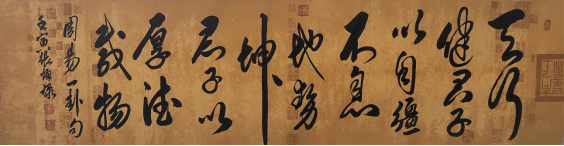 天行
健君子
以自彊
不息
地势
坤
君子以
厚德
载物
周易一卦句
壬寅张